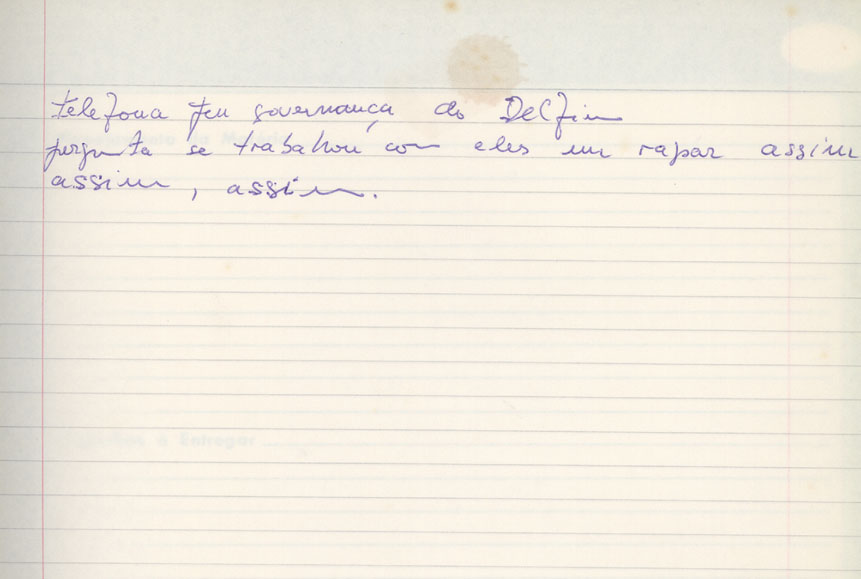 telefona pru governança do Delfim
pergunta se trabalhou com eles um rapaz assim
assim, assim.
a Entregar